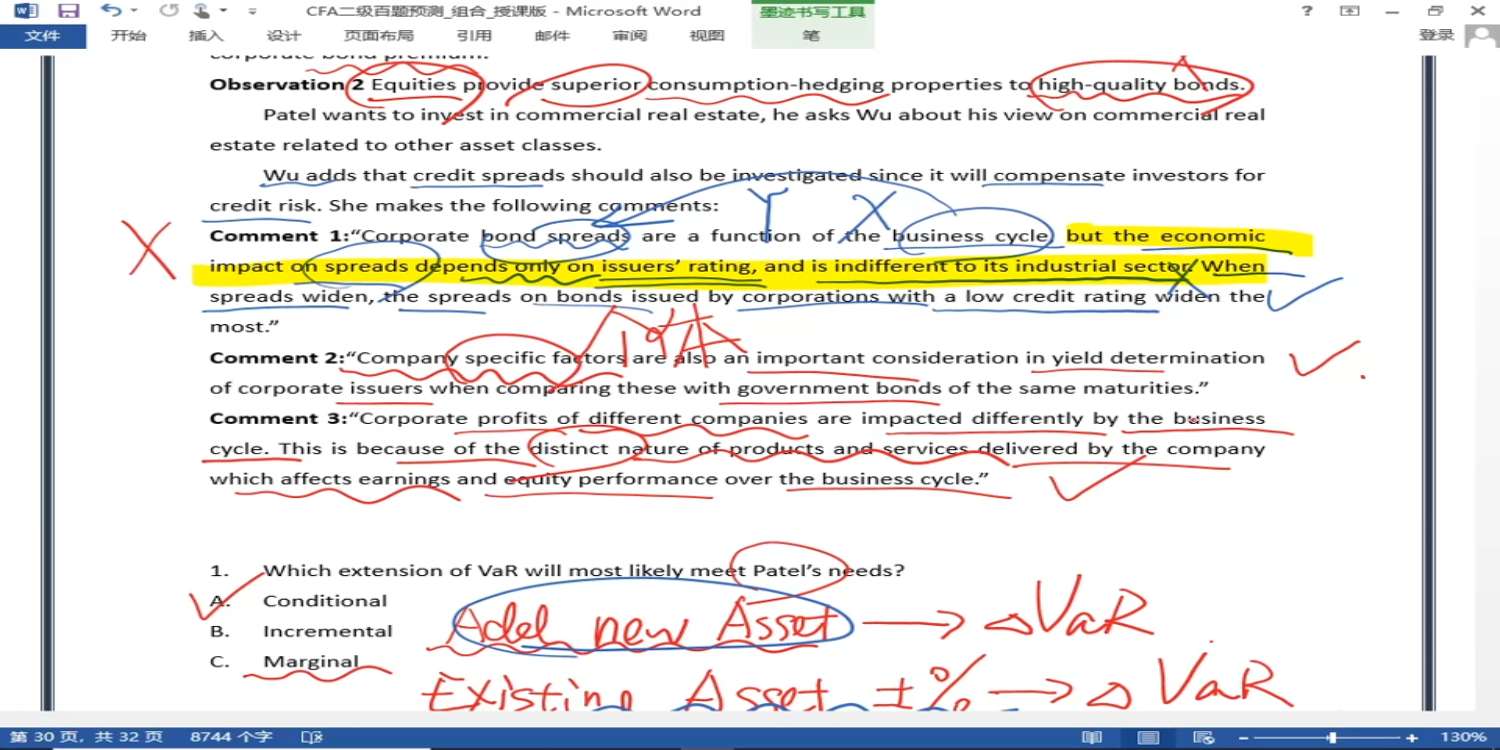 CFA二级百题预测_组合_授课版 - Microsoft Word
墨迹书写工具
文件 开始 插入 设计 页面布局 引用 邮件 审阅 视图 笔 登录
corporate bond premium.
Observation 2 Equities provide superior consumption-hedging properties to high-quality bonds.
Patel wants to invest in commercial real estate, he asks Wu about his view on commercial real
estate related to other asset classes.
Wu adds that credit spreads should also be investigated since it will compensate investors for
credit risk. She makes the following comments:
Y X
Comment 1:“Corporate bond spreads are a function of the business cycle, but the economic
X
impact on spreads depends only on issuers’ rating, and is indifferent to its industrial sector. When
spreads widen, the spreads on bonds issued by corporations with a low credit rating widen the
most.”
Comment 2:“Company specific factors are also an important consideration in yield determination
of corporate issuers when comparing these with government bonds of the same maturities.”
Comment 3:“Corporate profits of different companies are impacted differently by the business
cycle. This is because of the distinct nature of products and services delivered by the company
which affects earnings and equity performance over the business cycle.”
1. Which extension of VaR will most likely meet Patel’s needs?
A. Conditional
B. Incremental
Add new Asset → △VaR
C. Marginal
Existing Asset ±% → △ VaR
第 30 页，共 32 页 8744 个字 130%